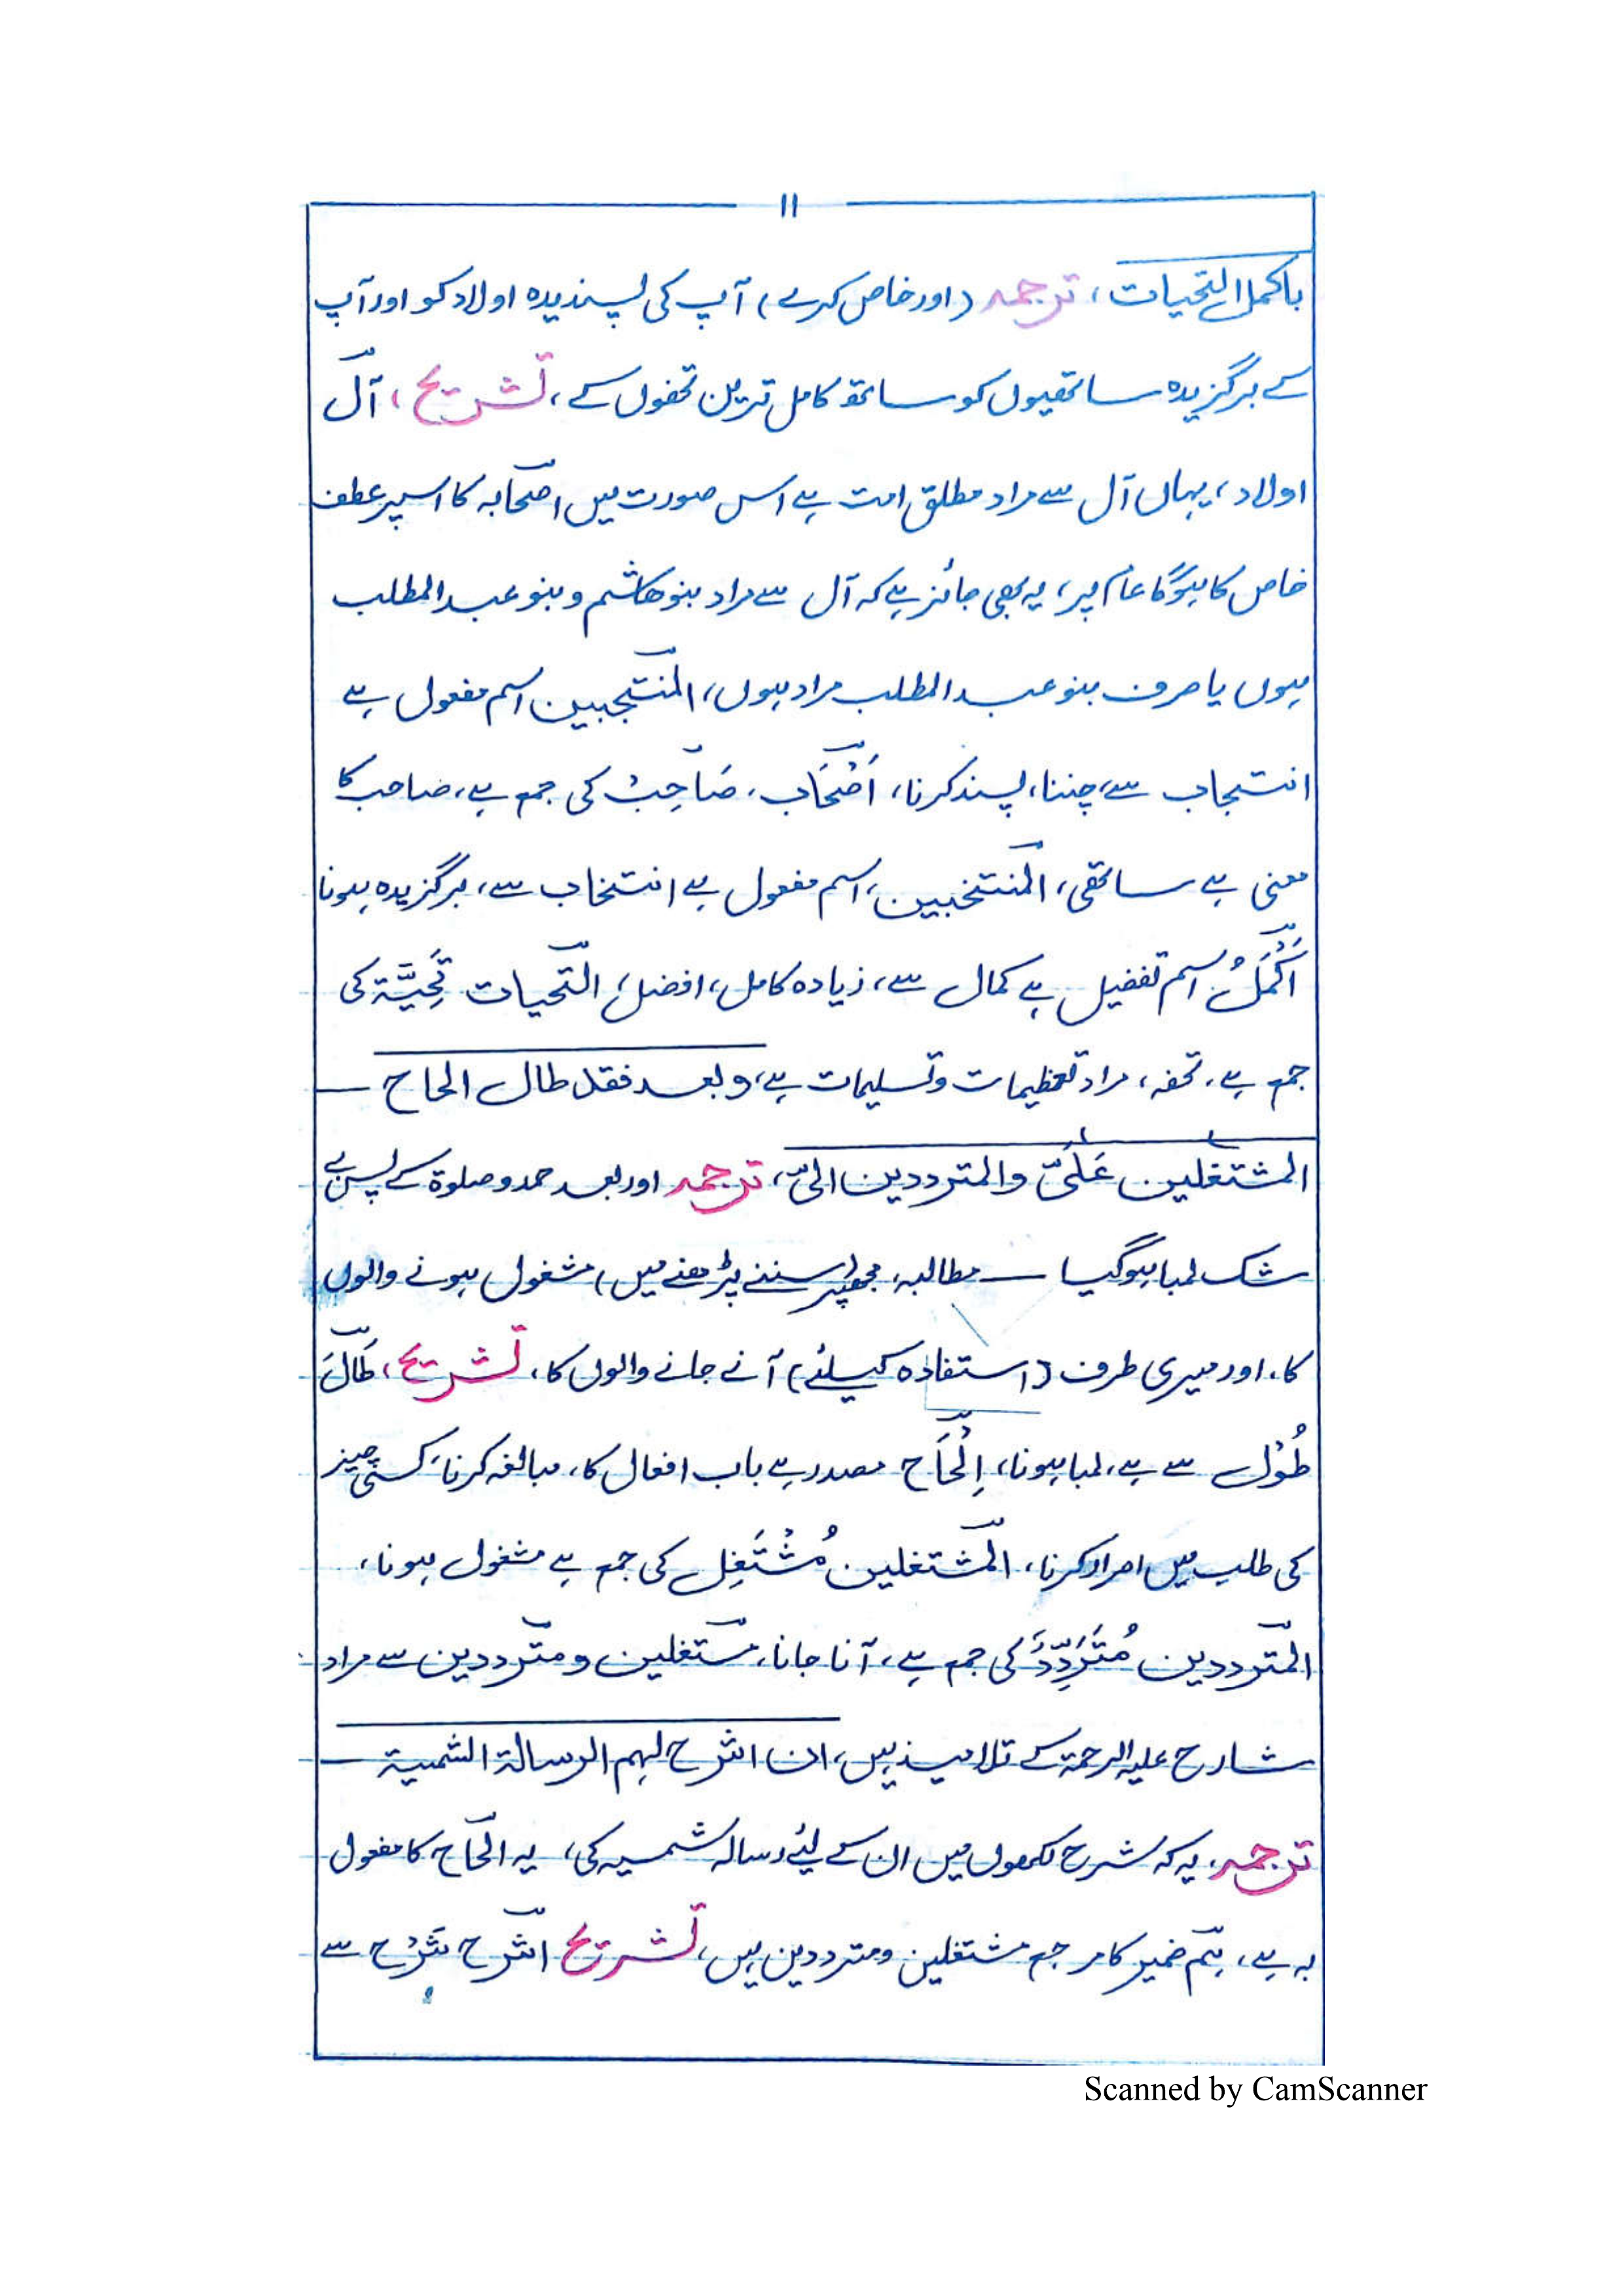 ۱۱
باکمل التحیات، ترجمہ (اور خاص کرے) آپ کی پسندیدہ اولاد کو اور آپ
کے برگزیدہ ساتھیوں کو ساتھ کامل ترین تحفوں کے، تشریح، آل
اولاد، یہاں آل سے مراد مطلق امت ہے اس صورت میں اصحابہ کا اسپر عطف
خاص کا ہوگا عام پر، یہ بھی جائز ہے کہ آل سے مراد بنو ھاشم و بنو عبدالمطلب
ہوں یا صرف بنو عبدالمطلب مراد ہوں، المنتجبین اسم مفعول ہے
انتجاب سے، چننا، پسند کرنا، اَصْحَاب، صَاحِبْ کی جمع ہے، صاحب کا
معنی ہے ساتھی، المنتخبین، اسم مفعول ہے انتخاب سے، برگزیدہ ہونا
اَکْمَلُ اسم تفضیل ہے کمال سے، زیادہ کامل، افضل، التحیات تَحِیَّۃ کی
جمع ہے، تحفہ، مراد تعظیمات و تسلیمات ہے، وبعد فقد طال الحاح
المشتغلین عَلَیَّ والمترددین الیّ، ترجمہ اور بعد حمد و صلوۃ کے پس بے
شک لمبا ہوگیا مطالبہ، مجھپر (سننے پڑھنے میں) مشغول ہونے والوں
کا، اور میری طرف (استفادہ کیلئے) آنے جانے والوں کا، تشریح، طَالَ
طُوْل سے ہے، لمبا ہونا، اِلْحَاح مصدر ہے باب افعال کا، مبالغہ کرنا، کسی چیز
کی طلب میں اصرار کرنا، المشتغلین مُشْتَغِل کی جمع ہے مشغول ہونا،
المترددین مُتَرَدِّدْ کی جمع ہے، آنا جانا، مشتغلین و مترددین سے مراد
شارح علیہ الرحمۃ کے تلامیذ ہیں، ان اشرح لہم الرسالۃ الشمسیۃ
ترجمہ، یہ کہ شرح لکھوں میں ان کے لیئے رسالہ شمسیہ کی، یہ الحاح کا مفعول
بہ ہے، ہم ضمیر کا مرجع مشتغلین و مترددین ہیں، تشریح اشرح شَرْح سے
Scanned by CamScanner